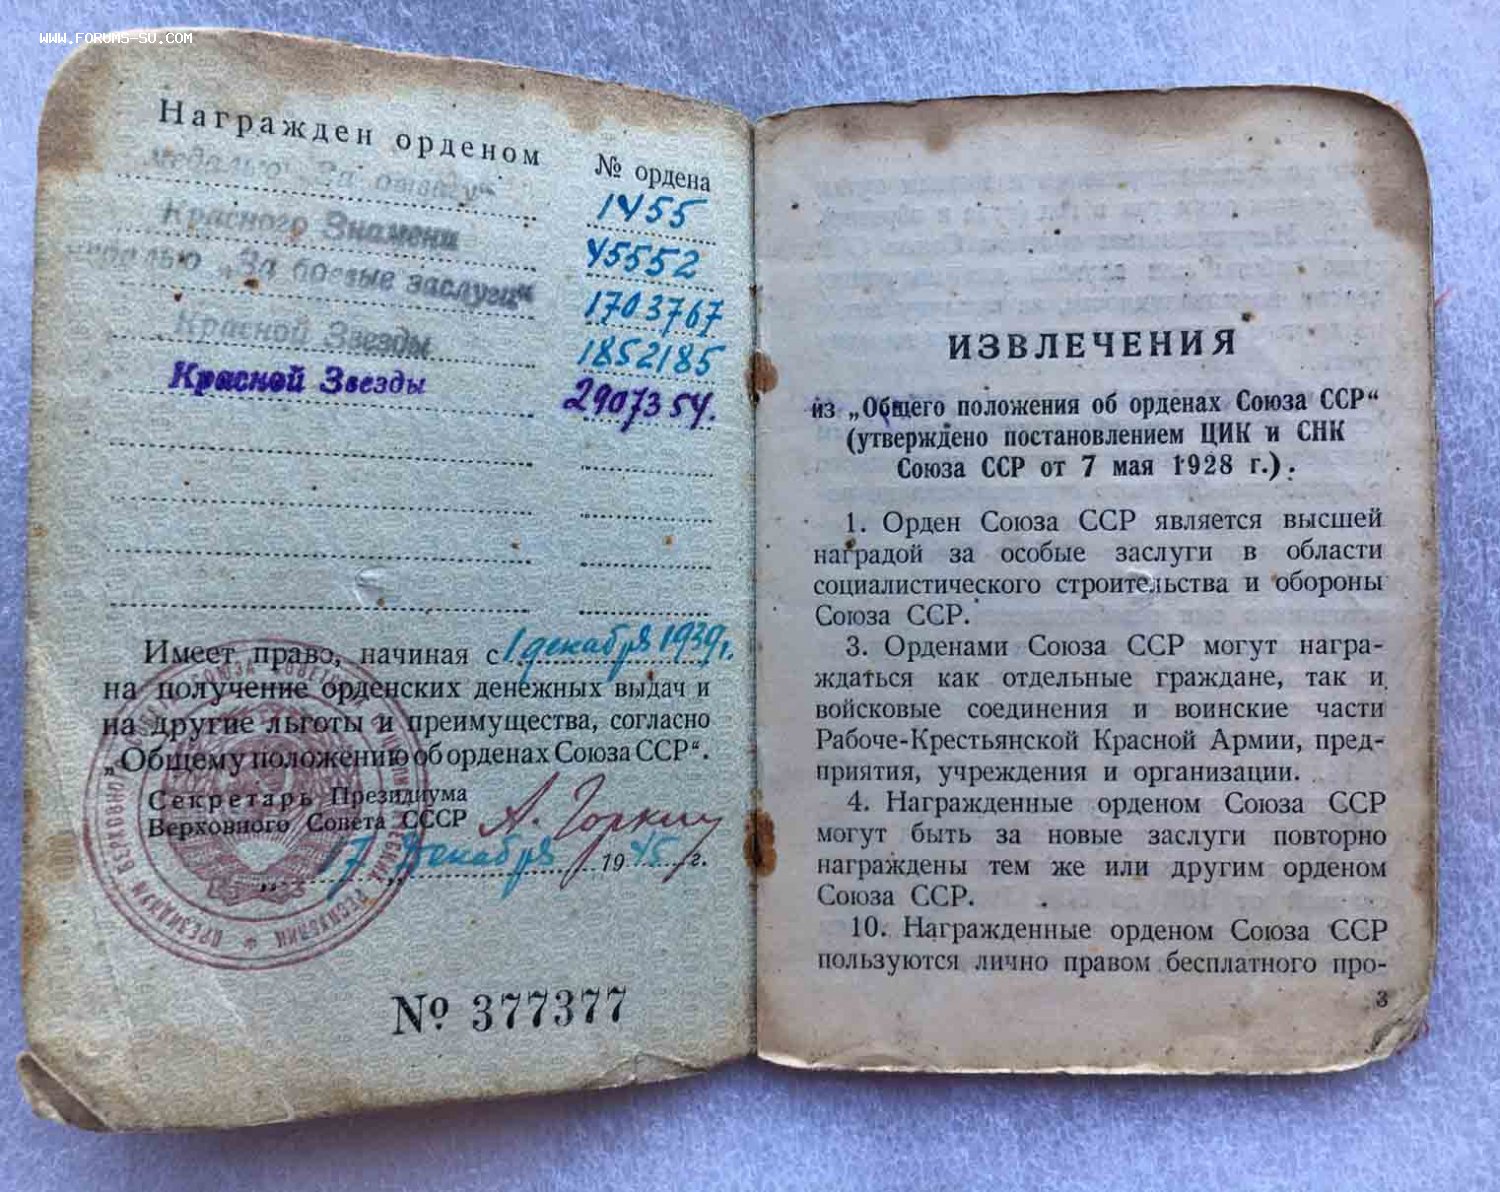 WWW.FORUMS-SU.COM
Награжден орденом № ордена
медалью „За отвагу“ 1455
Красного Знамени 45552
медалью „За боевые заслуги“ 1703767
Красной Звезды 1852185
Красной Звезды 2907354.
Имеет право, начиная с 1 декабря 1939 г.
на получение орденских денежных выдач и
на другие льготы и преимущества, согласно
„Общему положению об орденах Союза ССР“.
Секретарь Президиума
Верховного Совета СССР А. Горкин
17 декабря 1945 г.
№ 377377
ИЗВЛЕЧЕНИЯ
из „Общего положения об орденах Союза ССР“
(утверждено постановлением ЦИК и СНК
Союза ССР от 7 мая 1928 г.).
1. Орден Союза ССР является высшей
наградой за особые заслуги в области
социалистического строительства и обороны
Союза ССР.
3. Орденами Союза ССР могут награ-
ждаться как отдельные граждане, так и
войсковые соединения и воинские части
Рабоче-Крестьянской Красной Армии, пред-
приятия, учреждения и организации.
4. Награжденные орденом Союза ССР
могут быть за новые заслуги повторно
награждены тем же или другим орденом
Союза ССР.
10. Награжденные орденом Союза ССР
пользуются лично правом бесплатного про-
3